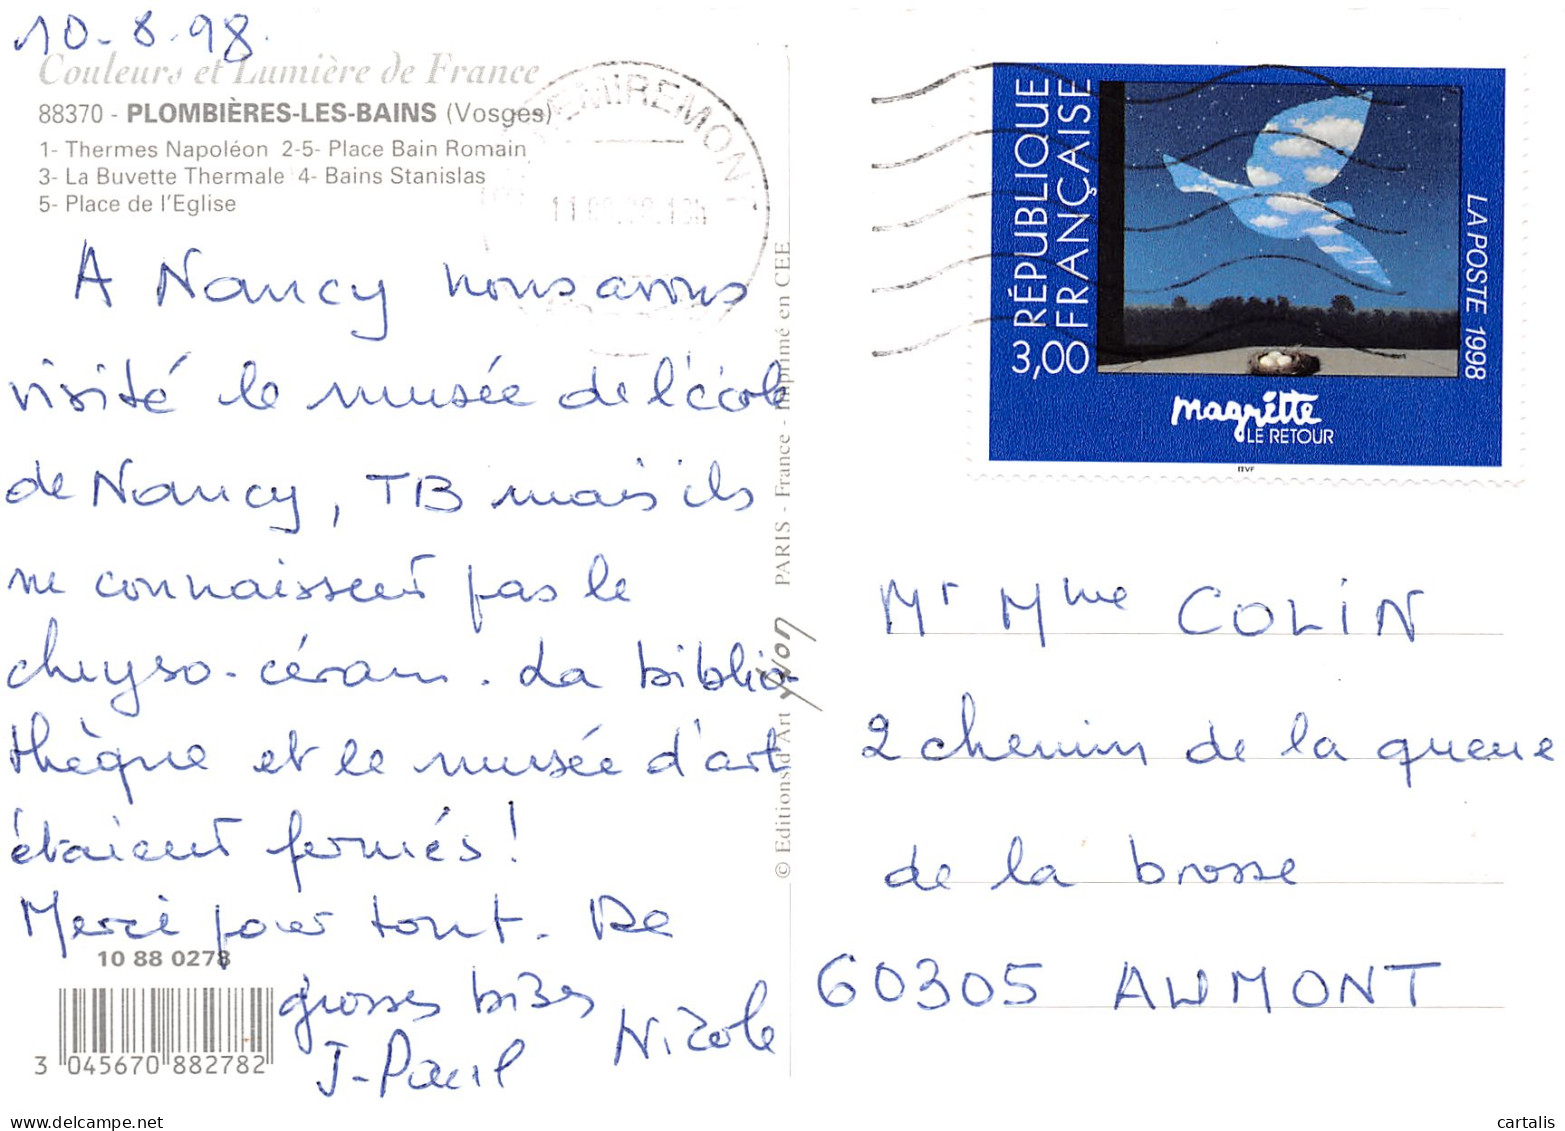 10-8-98.
Couleurs et Lumière de France
88370 - PLOMBIÈRES-LES-BAINS (Vosges)
1- Thermes Napoléon 2-5- Place Bain Romain
3- La Buvette Thermale 4- Bains Stanislas
5- Place de l'Eglise
A Nancy nous avons
visité le musée de l'école
de Nancy, TB mais ils
ne connaissent pas le
chryso-céram. La biblio-
thèque et le musée d'art
étaient fermés!
Merci pour tout. De
grosses bises
Nicole
J-Paul
10 88 0278
3 045670 882782
© Editions d'Art yvon PARIS - France - Imprimé en CEE
REMIREMONT
RÉPUBLIQUE
FRANÇAISE
3,00
LA POSTE 1998
magritte
LE RETOUR
ITVF
Mr Mme COLIN
2 chemin de la queue
de la brosse
60305 AUMONT
cartalis